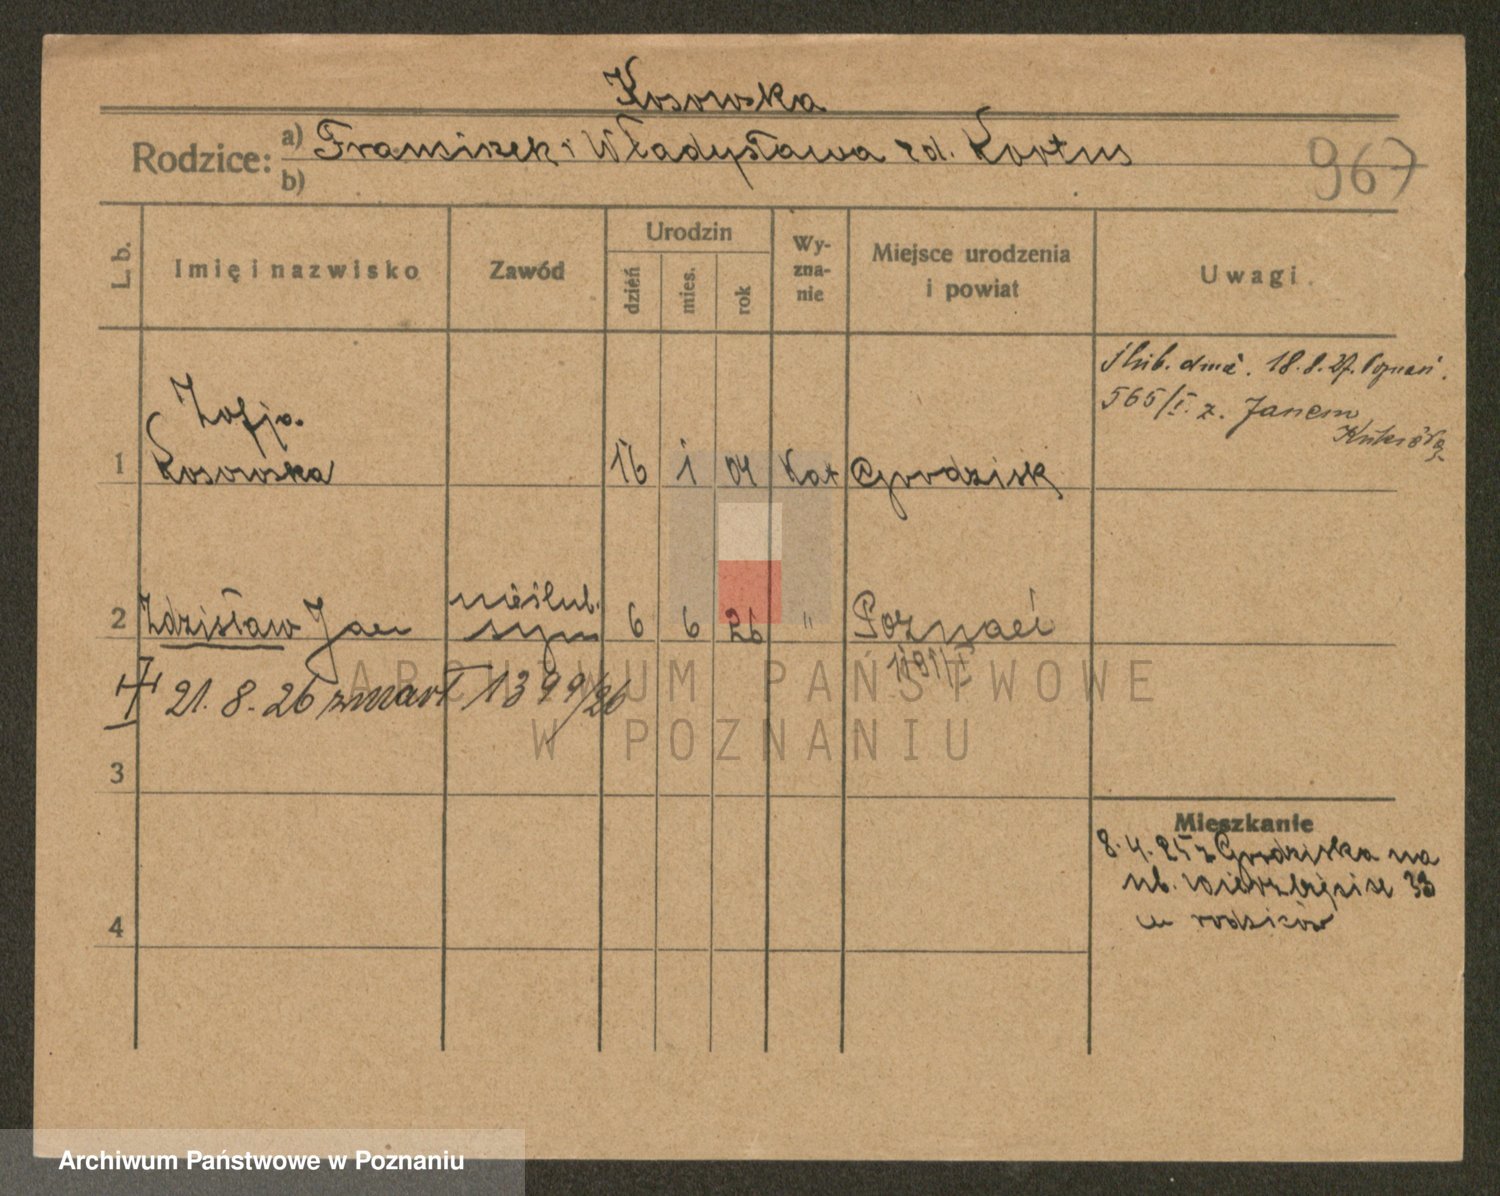 Kosowska
Rodzice: a) Franciszek i Władysława zd. Kortus
b)
967
L. b.
Imię i nazwisko
Zawód
Urodzin
dzień
mies.
rok
Wy-
zna-
nie
Miejsce urodzenia
i powiat
Uwagi.
ślub. dnia. 18.8.27. Poznań.
565/I. z. Janem
Zofja.
1 Kosowska 16 1 04 Kat Grodzisk
nieślub.
2 Zdzisław Jan syn 6 6 26 " Poznań
1191/I
21. 8. 26 zmarł 1399/26
3
Mieszkanie
8.4.25 z Grodziska na
ul. Wierzbięcice 33
u rodziców
4
ARCHIWUM PAŃSTWOWE
W POZNANIU
Archiwum Państwowe w Poznaniu